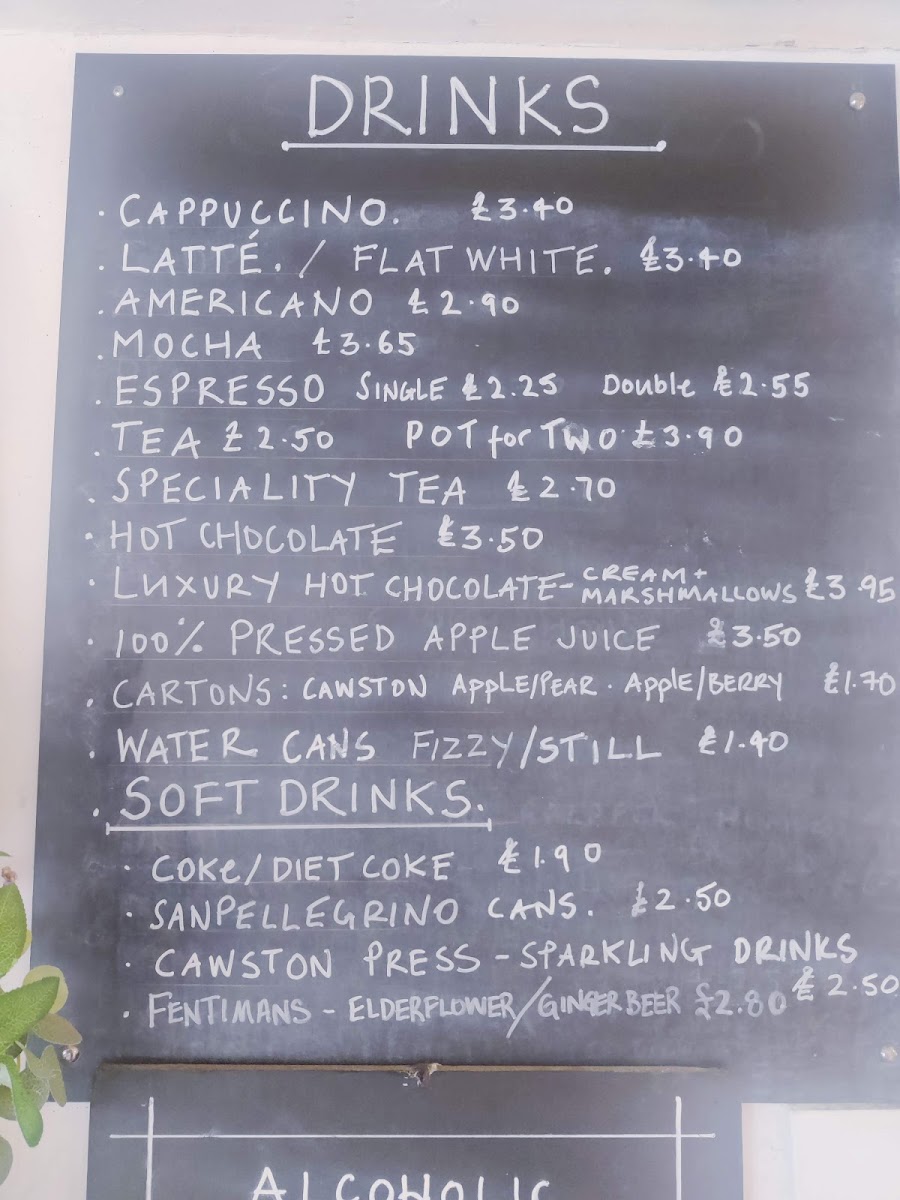 DRINKS
· CAPPUCCINO. £3.40
· LATTÉ. / FLAT WHITE. £3.40
· AMERICANO £2.90
· MOCHA £3.65
· ESPRESSO SINGLE £2.25 Double £2.55
· TEA £2.50 POT for TWO £3.90
· SPECIALITY TEA £2.70
· HOT CHOCOLATE £3.50
· LUXURY HOT CHOCOLATE - CREAM + MARSHMALLOWS £3.95
· 100% PRESSED APPLE JUICE £3.50
· CARTONS: CAWSTON APPLE/PEAR · APPLE/BERRY £1.70
· WATER CANS FIZZY/STILL £1.40
· SOFT DRINKS.
· COKe/DIET COKE £1.90
· SANPELLEGRINO CANS. £2.50
· CAWSTON PRESS - SPARKLING DRINKS £2.50
· FENTIMANS - ELDERFLOWER/GINGER BEER £2.80
ALCOHOLIC